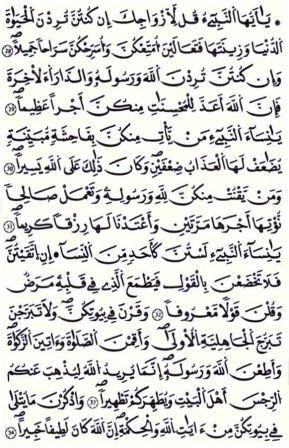 * يَٰٓأَيُّهَا ٱلنَّبِيٓءُ قُل لِّأَزْوَٰجِكَ إِن كُنتُنَّ تُرِدْنَ ٱلْحَيَوٰةَ
ٱلدُّنْيَا وَزِينَتَهَا فَتَعَالَيْنَ أُمَتِّعْكُنَّ وَأُسَرِّحْكُنَّ سَرَاحاً جَمِيلاًۖ 28
وَإِن كُنتُنَّ تُرِدْنَ ٱللَّهَ وَرَسُولَهُۥ وَٱلدَّارَ ٱلَاخِرَةَ
فَإِنَّ ٱللَّهَ أَعَدَّ لِلْمُحْسِنَٰتِ مِنكُنَّ أَجْراً عَظِيماًۖ 29
يَٰنِسَآءَ ٱلنَّبِيٓءِ مَنْ يَّاتِ مِنكُنَّ بِفَٰحِشَةٍ مُّبَيِّنَةٍ
يُضَٰعَفْ لَهَا ٱلْعَذَابُ ضِعْفَيْنِۖ وَكَانَ ذَٰلِكَ عَلَى ٱللَّهِ يَسِيراًۖ 30
وَمَنْ يَّقْنُتْ مِنكُنَّ لِلهِ وَرَسُولِهِۦ وَتَعْمَلْ صَٰلِحاً
نُّوتِهَآ أَجْرَهَا مَرَّتَيْنِ وَأَعْتَدْنَا لَهَا رِزْقاً كَرِيماًۖ 31
يَٰنِسَآءَ ٱلنَّبِيٓءِ لَسْتُنَّ كَأَحَدٍ مِّنَ ٱلنِّسَآءِ انِ ٱتَّقَيْتُنَّ
فَلَا تَخْضَعْنَ بِالْقَوْلِ فَيَطْمَعَ ٱلَّذِے فِے قَلْبِهِۦ مَرَضٌ
وَقُلْنَ قَوْلاً مَّعْرُوفاًۖ 32 وَقَرْنَ فِے بُيُوتِكُنَّۖ وَلَا تَبَرَّجْنَ
تَبَرُّجَ ٱلْجَٰهِلِيَّةِ ٱلُاولَىٰۖ وَأَقِمْنَ ٱلصَّلَوٰةَ وَءَاتِينَ ٱلزَّكَوٰةَ
وَأَطِعْنَ ٱللَّهَ وَرَسُولَهُۥٓۖ إِنَّمَا يُرِيدُ ٱللَّهُ لِيُذْهِبَ عَنكُمُ
ٱلرِّجْسَ أَهْلَ ٱلْبَيْتِ وَيُطَهِّرَكُمْ تَطْهِيراًۖ 33 وَاذْكُرْنَ مَا يُتْلَىٰ
فِے بُيُوتِكُنَّ مِنَ ءَايَٰتِ ٱللَّهِ وَالْحِكْمَةِۖ إِنَّ ٱللَّهَ كَانَ لَطِيفاً خَبِيراًۖ 34